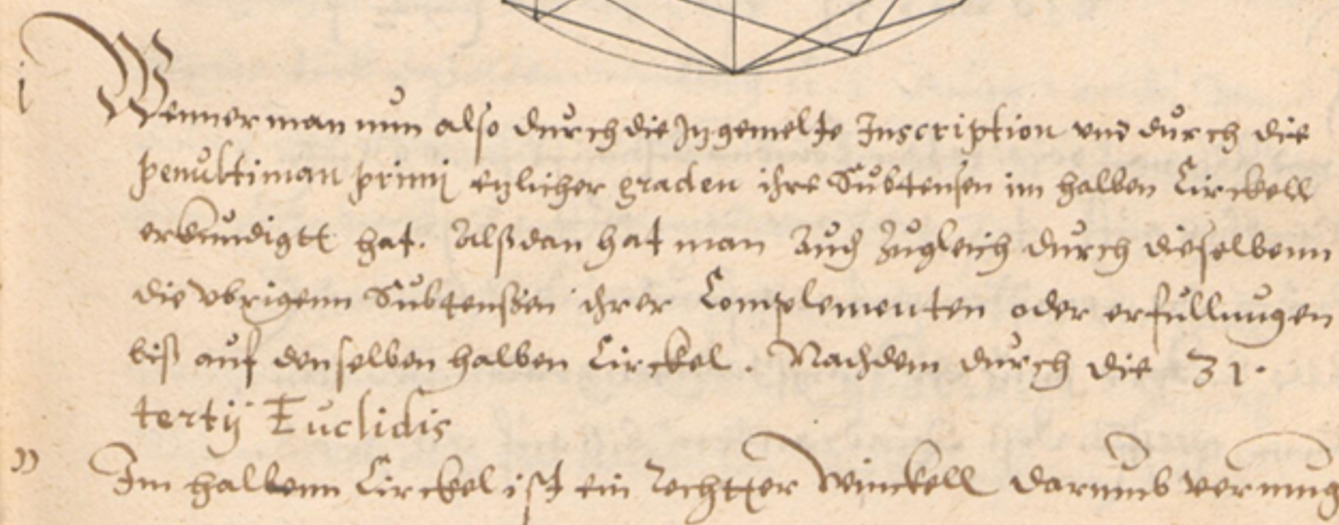 i Wenner man nun also durch die Ingemelte Inscription und durch die
penultiman primi etzlicher graden ihre Subtensen im halben Circkell
erkundigtt hat. Alßdan hat man Auch Zugleich durch dieselbenn
die vbrigenn Subtensen ihrer Complementen oder erfullungen
biß auf denselben halben Circkel. Nachdem durch die 31.
tertij Euclidis
Im halbenn Circkel ist ein Rechtter Winckell darumb